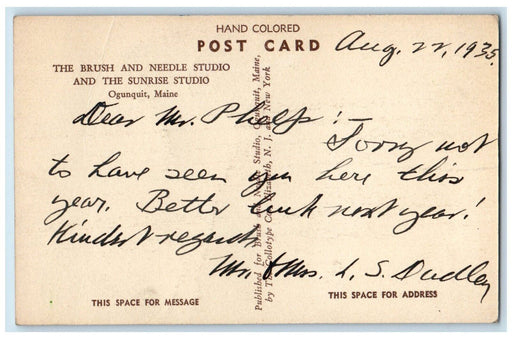 HAND COLORED
POST CARD
Aug. 22, 1935.
THE BRUSH AND NEEDLE STUDIO
AND THE SUNRISE STUDIO
Ogunquit, Maine
Dear Mr. Phelps: Sorry not
to have seen you here this
year. Better luck next year!
Kindest regards
Mr. & Mrs. L. S. Dudley
Published for Brush and Needle Studio, Ogunquit, Maine,
by The Collotype Co., Elizabeth, N. J. and New York
THIS SPACE FOR MESSAGE
THIS SPACE FOR ADDRESS